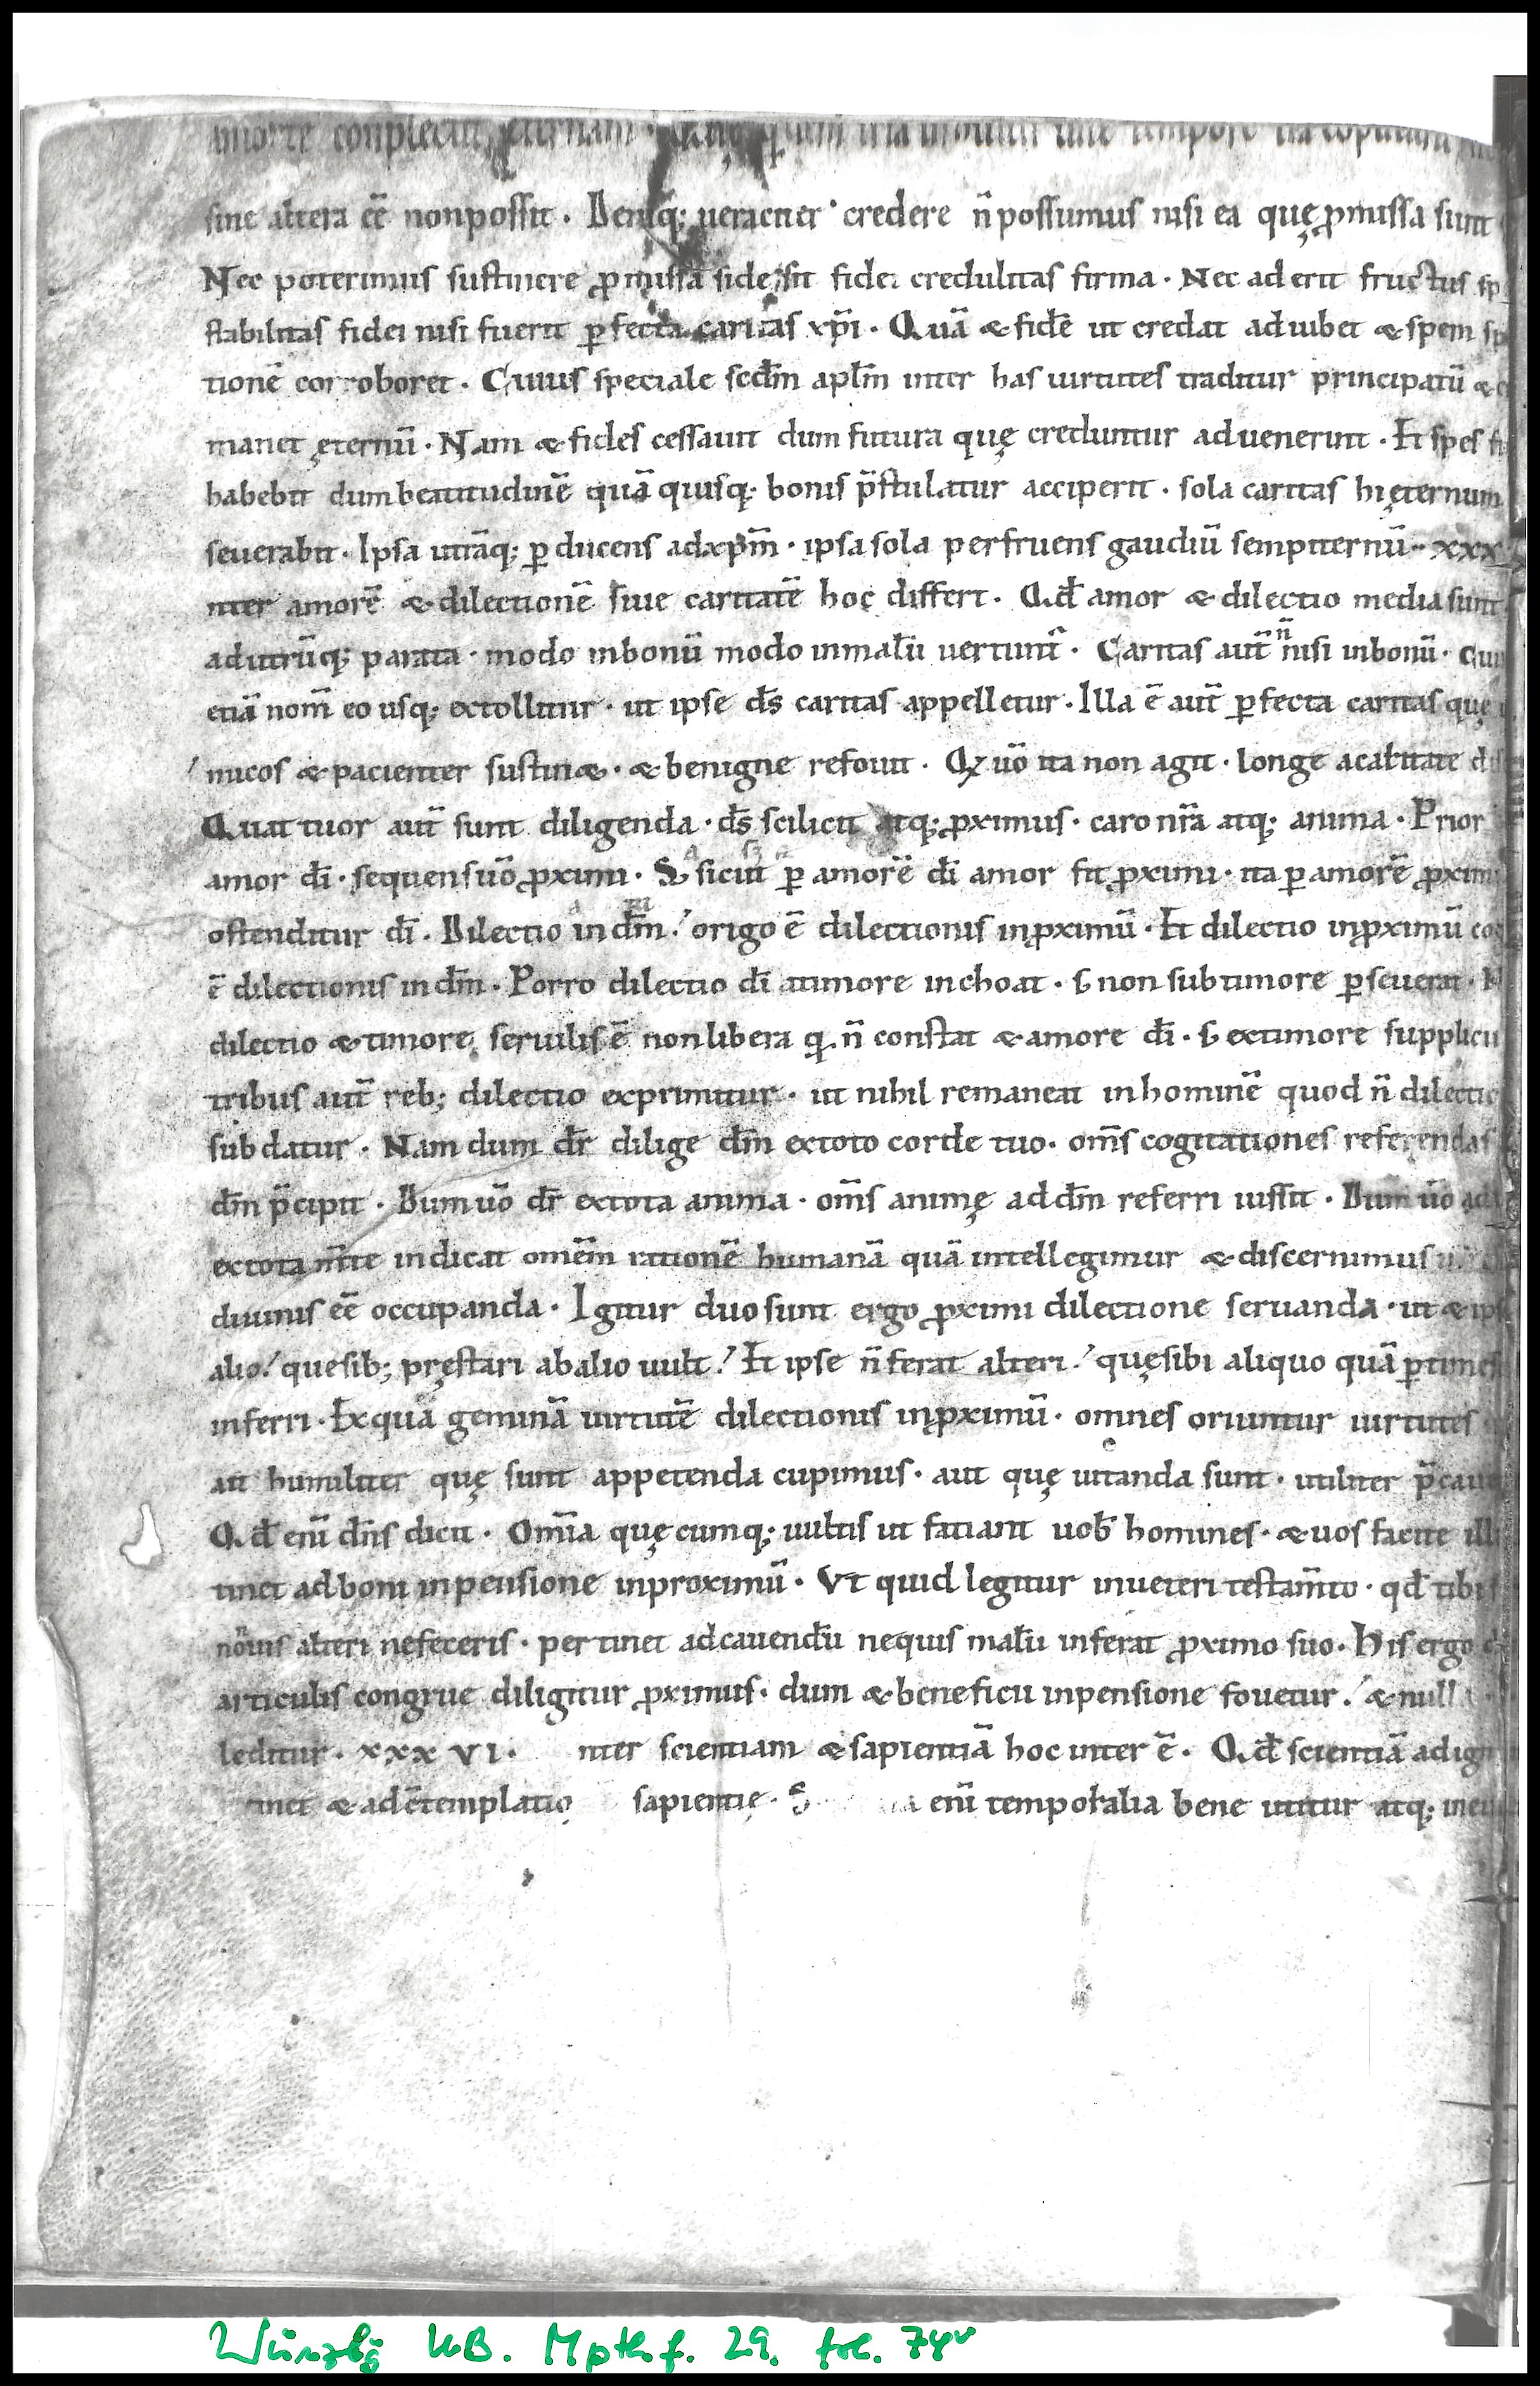 amore conplectit ęternam quem ista tempore ita copulam
sine altera cē non possit . Deniq; ueraciter credere n̄ possumus nisi ea quę ꝓmissa sunt
Nec poterimus sustinere ꝓmissa si de sit fidei credulitas firma . Nec ad erit fructus sp
stabilitas fidei nisi fuerit ꝑfecta caritas xp̄i . Quā & fidē ut credat ad iubet & spem sp
tionē corroboret . Cuius speciale scd̄m apl̄m inter has uirtutes traditur principatū &
manet ęternū . Nam & fides cessauit dum futura quę creduntur aduenerint . Et spes fi
habebit dum beatitudinē quā quisq; bonis p̄stulatur acciperit . sola caritas hi ęternum
seuerabit . Ipsa utrāq; ꝑducens ad xp̄m . ipsa sola perfruens gaudiū sempiternū . xxx
nter amorē & dilectionē siue caritatē hoc differt . Qd̄ amor & dilectio media sunt
ad utrūq; parata . modo in bonū modo in malū uertunt̄ . Caritas aut̄ n̄ nisi in bonū . Cui
etiā nom̄ eo usq; extollitur . ut ipse d̄s caritas appelletur . Illa ē aut̄ ꝑfecta caritas quę
micos & pacienter sustin& . & benigne refouit . Q uō ita non agit . longe a caritate
Quattuor aut̄ sunt diligenda . d̄s scilicit atq; ꝓximus . caro nr̄a atq; anima . Prior
amor dī . sequens uō ꝓximi . S sicut ꝑ amorē dī amor fit ꝓximi . ita ꝑ amorē ꝓximi
ostenditur dī . Dilectio in dm̄ . origo ē dilectionis in ꝓximū . Et dilectio in ꝓximū co
ē dilectionis in dm̄ . Porro dilectio dī a timore inchoat . s non sub timore ꝑseuerat . N
dilectio & timore seruilis ē non libera q n̄ constat & amore dī . s ex timore supplicii
tribus aut̄ reb; dilectio exprimitur . ut nihil remaneat in hominē quod n̄ dilectio
subdatur . Nam dum dr̄ dilige dm̄ ex toto corde tuo . om̄s cogitationes referendas
dm̄ p̄cipit . Dum uō dr̄ ex tota anima . om̄s animę ad dm̄ referri iussit . Dum uō ad
ex tota m̄te indicat omēm rationē humanā quā intellegimur & discernimus
diuinis eē occupanda . Igitur duo sunt ergo ꝓximi dilectione seruanda . ut & ips
alio . que sib; pręstari ab alio uult . Et ipse n̄ ferat alteri . quę sibi aliquo quā ꝑtimes
inferri . Ex qua geminā uirtutē dilectionis in ꝓximū . omnes oriuntur uirtutes
aut humiliter quę sunt appetenda cupimus . aut quę uitanda sunt . utiliter p̄caue
Qd̄ enī dn̄s dicit . Omīa quęcumq; uultis ut fatiant uob homines . & uos facite illi
tinet ad boni inpensione in proximū . Vt quid legitur in ueteri testam̄to . qd̄ tibi
nouis alteri ne feceris . pertinet ad cauendū ne quis malū inferat ꝓximo suo . His ergo
articulis congrue diligitur ꝓximus . dum & beneficii inpensione fouetur . & nulla
leditur . xxx vi . nter scientiam & sapientiā hoc inter ē . Qd̄ scientiā ad ign
inet & ad c̄templatio sapientię . enī temporalia bene utitur atq;
Würzbg UB. Mp th. f. 29. fol. 74v